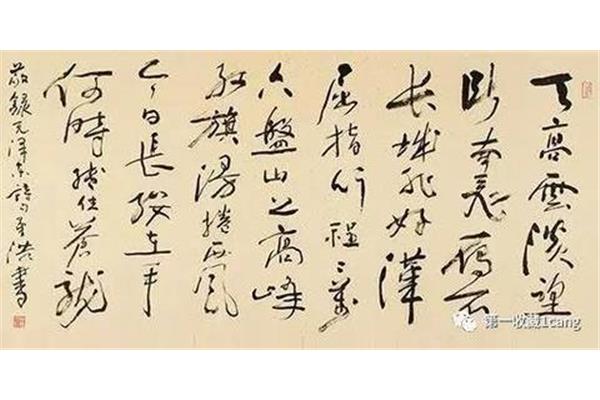 天高雲淡望
断南飛雁不到
长城非好漢
屈指行程二万
六盤山上高峰
红旗漫捲西風
今日長纓在手
何時縛住蒼龍
敬録毛澤東詩 洪書
第一收藏1cang